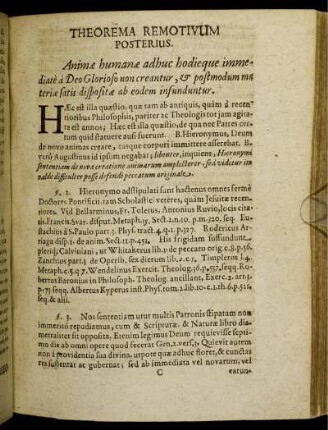 THEOREMA REMOTIVUM
POSTERIUS.
Animæ humanæ adhuc hodieque imme-
diatè à Deo Glorioso non creantur, & postmodum ma
teriæ satis dispositæ ab eodem infunduntur.
HÆc est illa quæstio, quæ tam ab antiquis, quàm à recen-
tioribus Philosophis, pariter ac Theologis tot jam agita-
ta est annos; Hæc est illa quæstio, de qua nec Patres cer-
tum quid statuere ausi fuerunt. B. Hieronymus, Deum
de novo animas creare, easque corpori immittere asserebat. B.
verò Augustinus id ipsum negabat; libenter, inquiens, Hieronymi
sententiam de nova creatione animarum amplecterer, sed videtur in
valde difficulter posse defendi peccatum originale.
§. 2. Hieronymo adstipulati sunt hactenus omnes fermè
Doctores Pontificii, tam Scholastici veteres, quàm Jesuitæ recen-
tiores. Vid. Bellarminus, Fr. Toletus, Antonius Ruvio, locis cita-
tis. Franc. Svar. disput. Metaph. 15. Sect. 2. n. 10. p.m. 320. seq. Eu-
stachius à S. Paulo part. 3. Phys. tract. 4. q. 1. p. 317. Rodericus Ar-
riaga disp. 1. de anim. Sect. 11. p. 451. His frigidam suffundunt
pleriq; Calviniani, ut Whitakerus lib. 2. de peccato orig. c. 8. p. 56.
Zanchius part. 3. de Operib. sex dierum lib. 2. c. 5. Timplerus l. 4.
Metaph. c. 5. q. 7. Wendelinus Exercit. Theolog. 36. p. 537. seqq. Ro-
bertus Baronius in Philosoph. Theolog. ancillant. Exerc. 2. art. 3.
p. 75. seqq. Albertus Kyperus inst. Phys. tom. 2. lib. 10. c. 1. th. 6. p. 515.
seq. & alii.
§. 3. Nos sententiam utut multis Patronis stipatam non
immeritò repudiamus, cum & Scripturæ & Naturæ libro dia-
metraliter sit opposita. Etenim legimus Deum requievisse septi-
mo die ab omni opere quod fecerat Gen. 2. vers. 2. Quievit autem
non à providentia sua divina, utpote quæ adhuc floret, & cunctas
res sustentat ac gubernat; sed ab immediata vel novarum, vel
C earun-